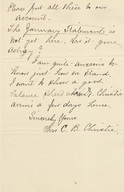 Please put all these to our
account.
The January Statement is
not yet here. Has it gone
astray?
I am quite anxious to
know just how we stand.
I want to show a good
balance when Mr. Christie
arrives a few days hence.
Sincerely yours
Mrs C. B. Christie.